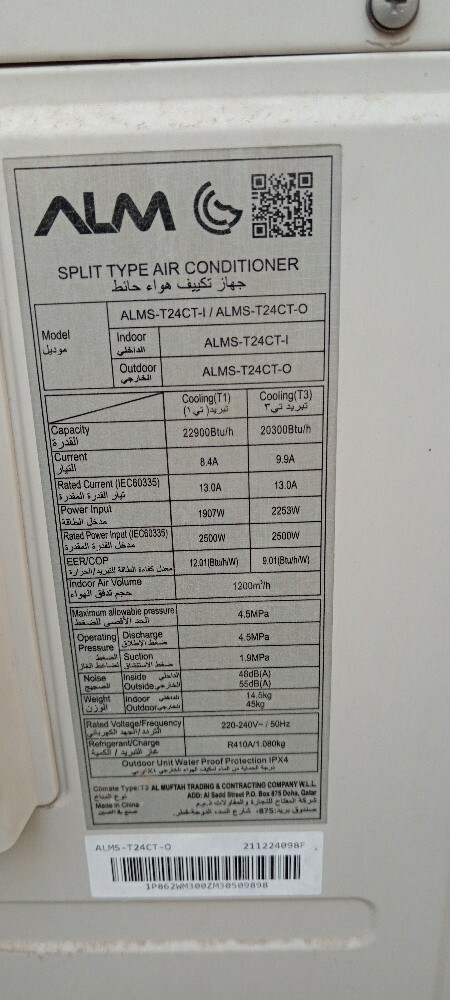 ALM
SPLIT TYPE AIR CONDITIONER
جهاز تكييف هواء حائط
Model
موديل
ALMS-T24CT-I / ALMS-T24CT-O
Indoor
الداخلي
ALMS-T24CT-I
Outdoor
الخارجي
ALMS-T24CT-O
Cooling(T1)
تبريد(تي١)
Cooling(T3)
تبريد تي٣
Capacity
القدرة
22900Btu/h
20300Btu/h
Current
التيار
8.4A
9.9A
Rated Current (IEC60335)
تيار القدرة المقدرة
13.0A
13.0A
Power Input
مدخل الطاقة
1907W
2253W
Rated Power Input (IEC60335)
مدخل القدرة المقدرة
2500W
2500W
EER/COP
معدل كفاءة الطاقة للتبريد/الحرارة
12.01(Btu/h/W)
9.01(Btu/h/W)
Indoor Air Volume
حجم تدفق الهواء
1200m³/h
Maximum allowable pressure
الحد الأقصى للضغط
4.5MPa
Operating Pressure
Discharge
4.5MPa
Suction
1.9MPa
Noise
الضجيج
Inside الداخلي
48dB(A)
Outside الخارجي
55dB(A)
Weight
الوزن
Indoor الداخلي
14.5kg
Outdoor الخارجي
45kg
Rated Voltage/Frequency
التردد/الجهد الكهربائي
220-240V~ / 50Hz
Refrigerant/Charge
غاز التبريد / الكمية
R410A/1.080kg
Outdoor Unit Water Proof Protection IPX4
Climate Type:T3 AL MUFTAH TRADING & CONTRACTING COMPANY W.L.L.
نوع المناخ
ADD: Al Sadd Street P.O. Box 875 Doha, Qatar
شركة المفتاح للتجارة والمقاولات ذ.م.م
Made in China
صنع في الصين
صندوق بريد:875، شارع السد، الدوحة-قطر.
ALMS-T24CT-O
211224098F
1P862WM300ZM30509898